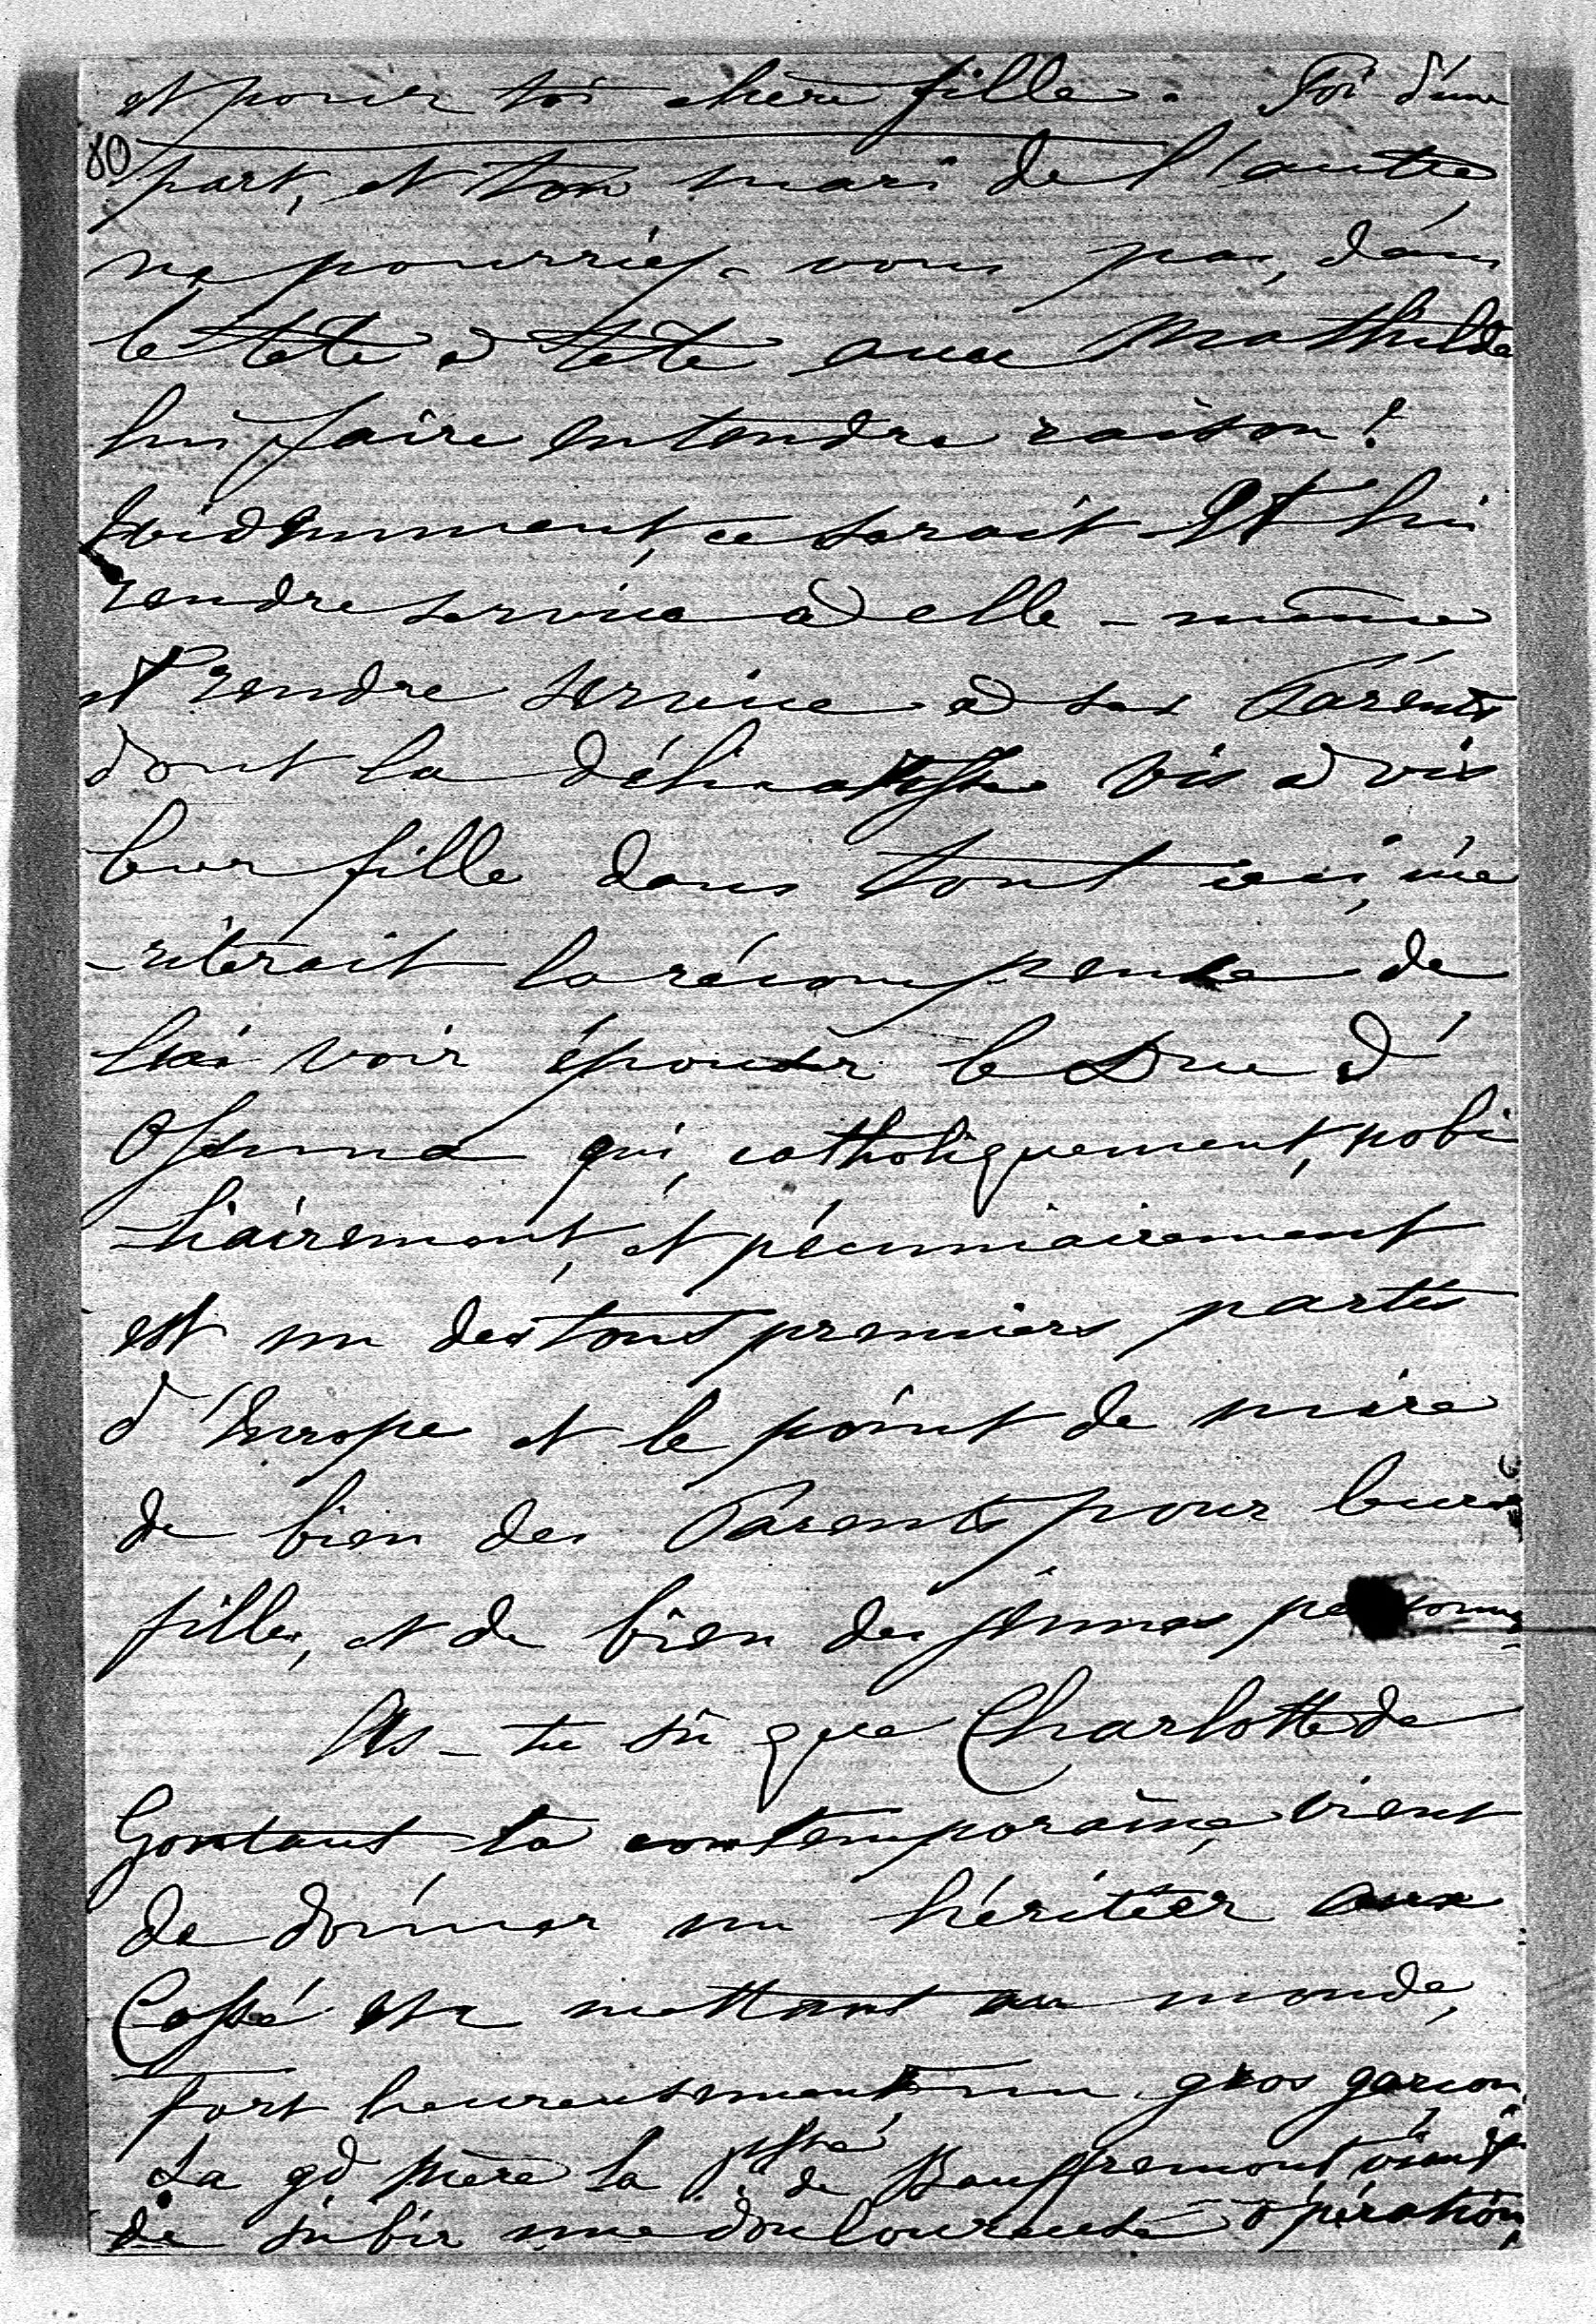 et pour toi chère fille. Toi d'une
80
part, et ton mari de l'autre
ne pourriez-vous pas, dans
le tête à tête avec Mathilde
lui faire entendre raison?
Evidemment, ce serait et lui
rendre service à elle-même
et rendre service à ses Parents
dont la délicatesse vis à vis
leur fille dans tout ceci, mé
-riterait la récompense de
lui voir épouser le Duc d'
Ossunna qui, catholiquement, nobi
-liairement, et pécuniairement
est un des tous premiers partis
d'Europe et le point de mire
de bien des Parents pour leurs
filles, et de bien des jeunes personnes
As-tu sû que Charlotte de
Gontaut ta contemporaine, vient
de donner un héritier aux
Cossé en mettant au monde,
fort heureusement, un gros garçon.
Sa gd mère la Psse de Bauffremont vient
de subir une douloureuse opération,